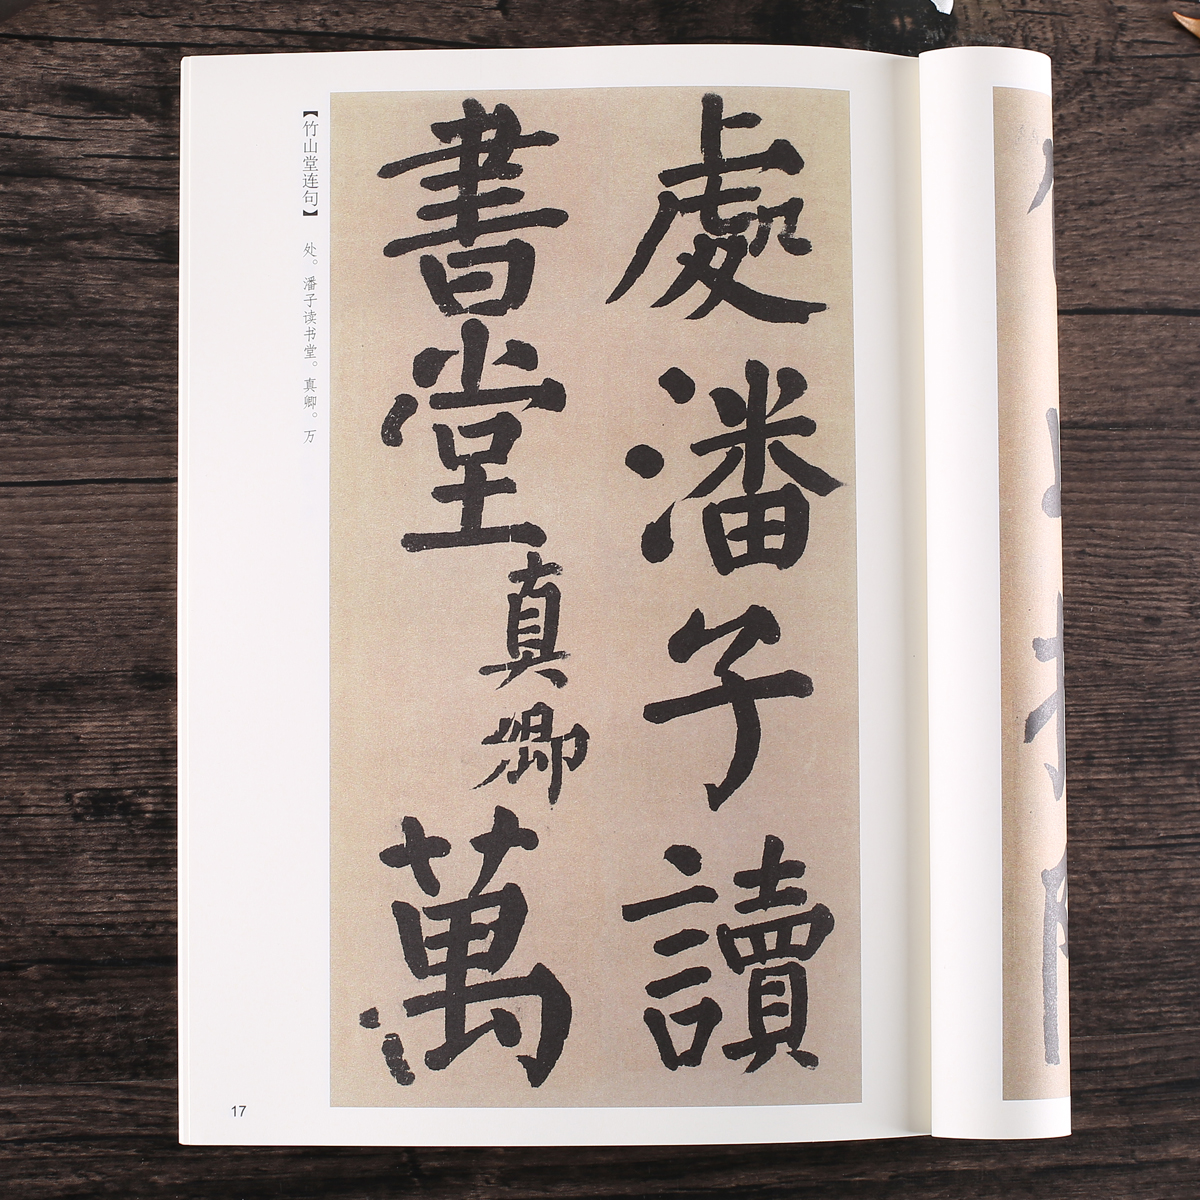 處潘子讀
書堂真卿萬
【竹山堂连句】 处。潘子读书堂。真卿。万
17